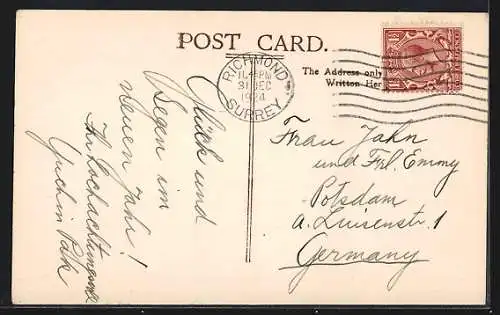 POST CARD.
RICHMOND
31 DEC
1924
SURREY
The Address only
Written Her
Glück und
Segen im
neuen Jahr!
Ihr hochachtungsvoll
Frau Jahn
und Frl. Emmy
Potsdam
a. Luisenstr. 1
Germany